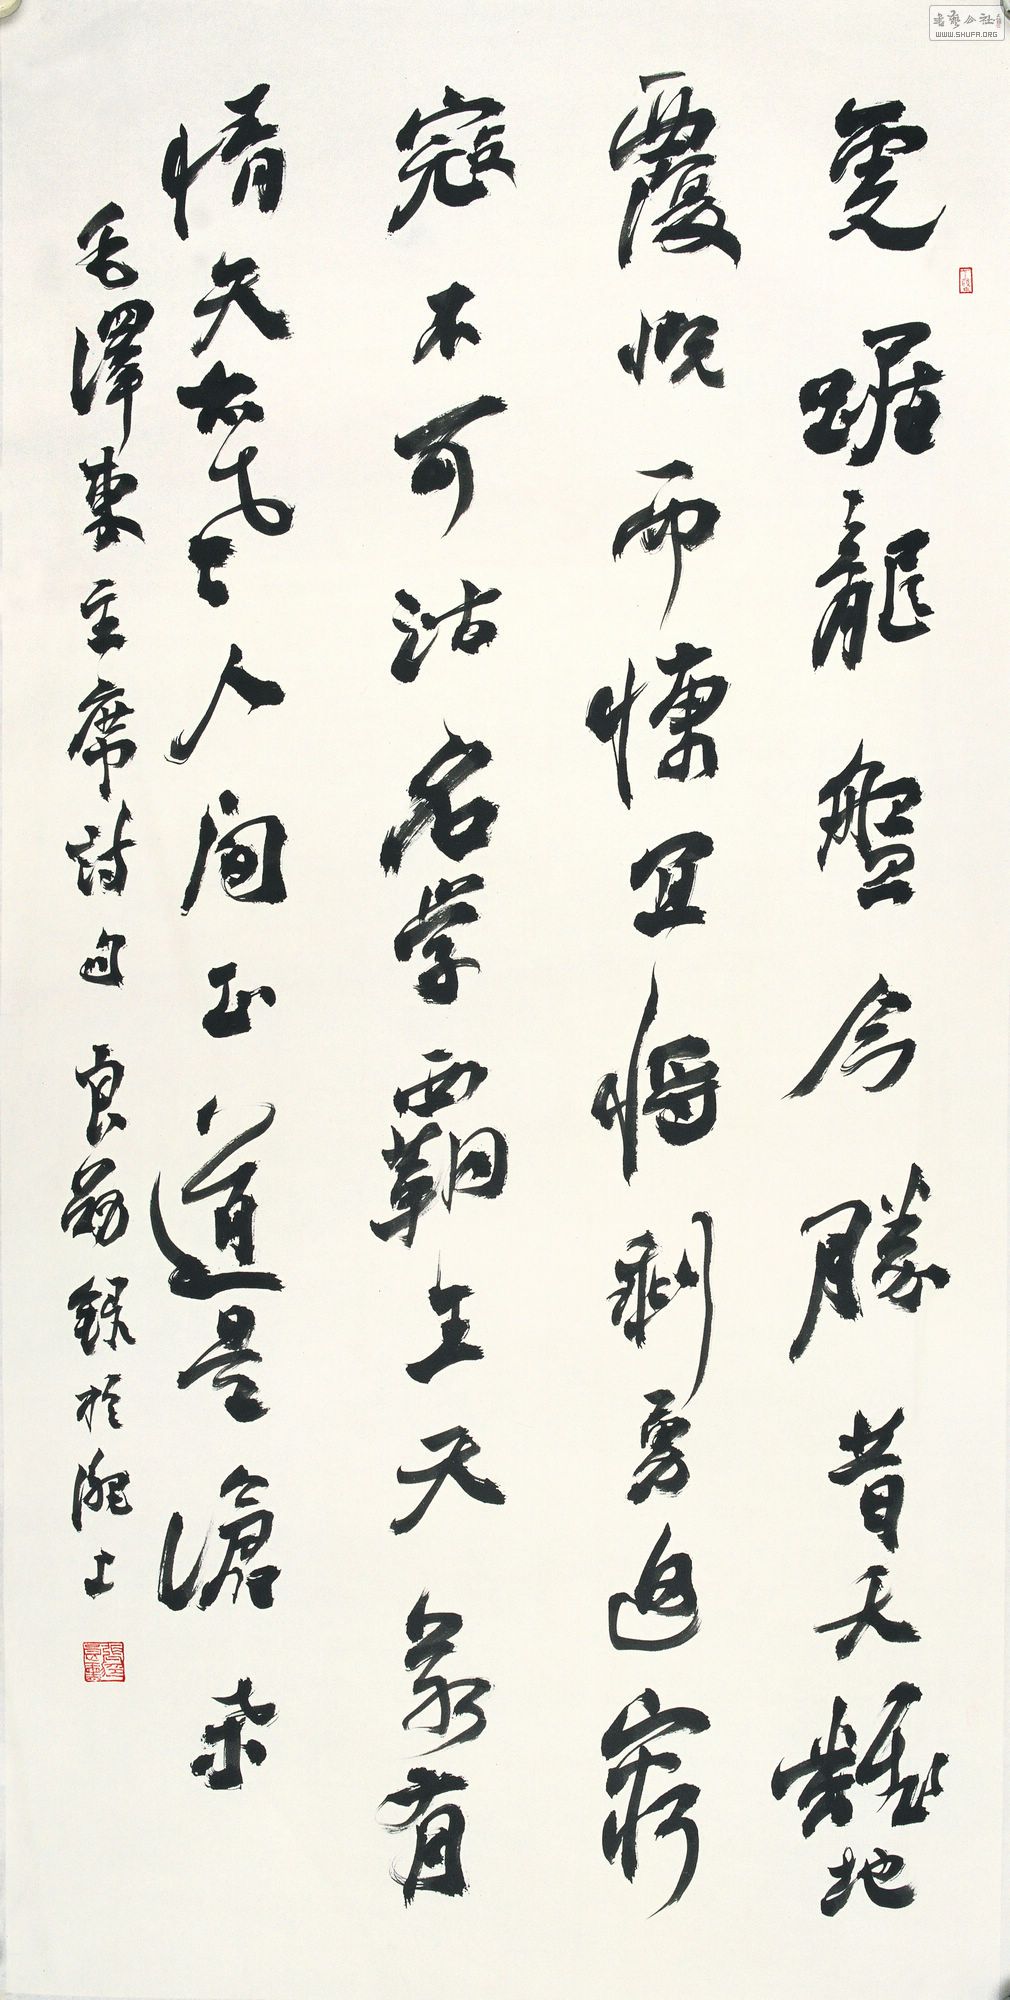 虎踞龍盤今勝昔天飜地
覆慨而慷宜將剩勇追窮
寇不可沽名学霸王天若有
情天亦老人間正道是滄桑
毛澤東主席詩句 良勛錄於滬上
書藝公社
WWW.SHUFA.ORG